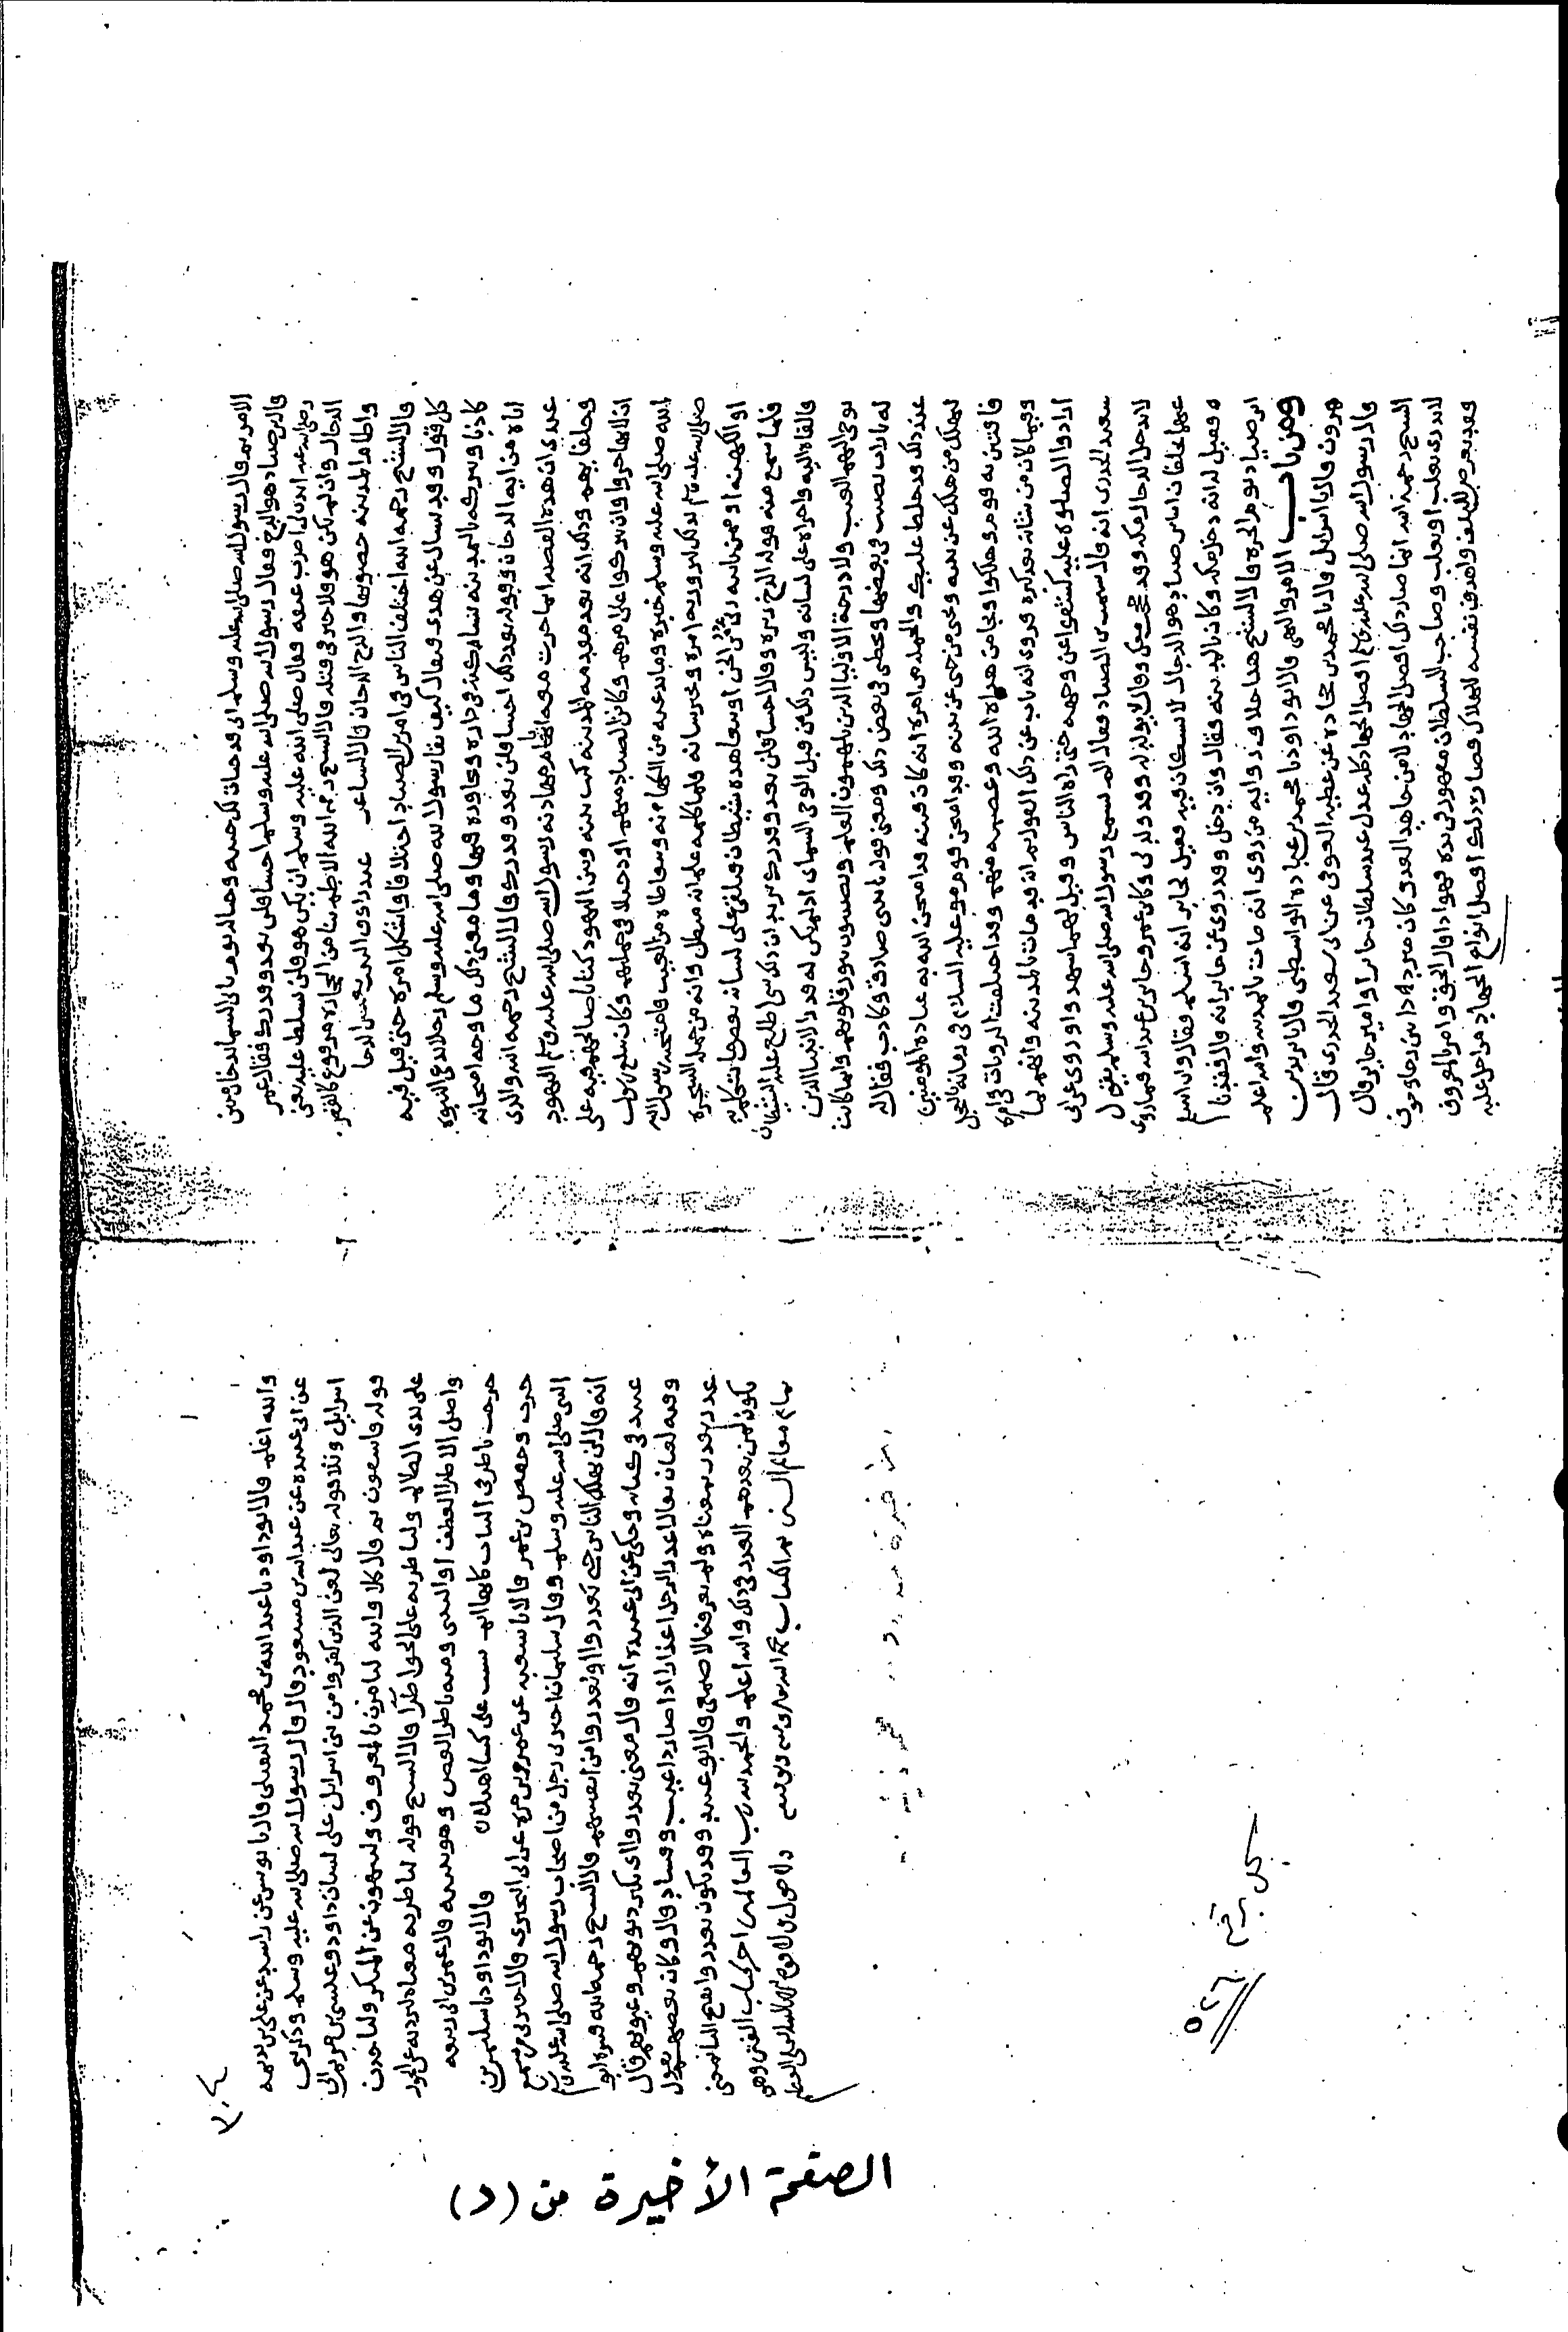 الامر ثم قال رسول الله صلى الله عليه وسلم اني قد خبات لك خبية وخبا له يوم تاتي السما بدخان مبين
قال ابن صياد هو الدخ فقال رسول الله صلى الله عليه وسلم اخسا فلن تعدو قدرك فقال عمر
رضي الله عنه ايذن لي اضرب عنقه فقال صلى الله عليه وسلم ان يكن هو فلن تسلط عليه يعني
الدجال وان لم يكن هو فلا خير في قتله قال الشيخ رحمه الله الاطم بنا من الحجارة مرفوع كالقصر
واطام المدينة حصونها والدخ الدخان قال الشاعر عند رواق البيت يغشى الدخا
قال الشيخ رحمه الله اختلف الناس في امر ابن الصياد اختلافا واشكل امره حتى قيل فيه
كل قول وقد يسال عن هذا فيقال كيف يقار رسول الله صلى الله عليه وسلم رجلا يدعي النبوة
كاذبا ويتركه بالمدينة يساكنه في داره ويجاوره فيها وما معنى ذلك وما وجه امتحانه
اياه من اية الدخان وقوله بعد ذلك اخسا فلن تعدو قدرك قال الشيخ رحمه الله والذي
عندي ان هذه القصة انما جرت معه ايام مهادنة رسول الله صلى الله عليه وسلم اليهود
وحلفاهم وذلك انه بعد مقدمه المدينة كتب بينه وبين اليهود كتابا صالحهم فيه على
ان لا يهاجوا وان يتركوا على امرهم وكان ابن الصياد منهم او دخيلا في جملتهم وكان يبلغ رسول
الله صلى الله عليه وسلم خبره وما يدعيه من الكهانة ويتعاطاه من الغيب فامتحنه رسول الله
صلى الله عليه وسلم بذلك ليروز به امره ويخبر شانه فلما كلمه علم انه مبطل وانه من جملة السحرة
او الكهنة او ممن ياتيه رئي من الجن او يتعاهده شيطان فيلقي على لسانه بعض ما يتكلم به
فلما سمع منه قوله الدخ زبره وقال اخسا فلن تعدو قدرك يريد ان ذلك شي اطلع عليه الشيطان
فالقاه اليه واجراه على لسانه وليس ذلك من قبل الوحي السماوي اذ لم يكن له قدر الانبيا الذين
يوحى اليهم الغيب ولا درجة الاوليا الذين يلهمون العلم ويصيبون بنور قلوبهم وانما كانت
له تارات يصيب في بعضها ويخطي في بعض وذلك معنى قوله ياتيني صادق وكاذب فقال له
عند ذلك قد خلط عليك والجملة من امره انه كان فتنة قد امتحن الله به عباده المومنين
ليهلك من هلك عن بينة ويحيى من حي عن بينة وقد امتحن قوم موسى عليه السلام في زمانه بالعجل
فافتتن به قوم وهلكوا ونجا من هداه الله وعصمه منهم وقد اختلفت الروايات في امره
وفيما كان من شانه بعد كبره فروي انه تاب عن ذلك القول ثم انه مات بالمدينة وانهم لما
ارادوا الصلوة عليه كشفوا عن وجهه حتى راه الناس وقيل لهم اشهدوا وروي عن ابي
سعيد الخدري انه قال شتمت ابن الصياد فقال الم تسمع رسول الله صلى الله عليه وسلم يقول
لا يدخل الدجال مكة وقد حججت معك وقال لا يولد له وقد ولد لي وكان ابن عمر وجابر بن عبد الله فيما روي
عنهما يحلفان ان ابن صياد هو الدجال لا يشكان فيه فقيل لجابر انه اسلم فقال وان اسلم
فقيل له انه دخل مكة وكان بالمدينة فقال وان دخل وقد روي عن جابر انه قال فقدنا
ابن صياد يوم الحرة قال الشيخ هذا خلاف رواية من روى انه مات بالمدينة والله اعلم
ومن باب الامر والنهي قال ابو داود نا محمد بن عبادة الواسطي قال نا يزيد بن
هرون قال نا اسرايل قال نا محمد بن جحادة عن عطية العوفي عن ابي سعيد الخدري قال
قال رسول الله صلى الله عليه وسلم افضل الجهاد كلمة عدل عند سلطان جاير او امير جاير قال
الشيخ رحمه الله انما صار ذلك افضل الجهاد لان من جاهد العدو كان مترددا بين رجا وخوف
لا يدري يغلب او يغلب وصاحب السلطان مقهور في يده فهو اذا قال الحق وامر بالمعروف
فقد تعرض للتلف واهدف نفسه للهلاك فصار ذلك افضل انواع الجهاد من اجل غلبة
٣٠٤
والله اعلم قال ابو داود نا عبد الله بن محمد النفيلي قال نا يونس عن راشد عن علي بن بذيمة
عن ابي عبيدة عن عبد الله بن مسعود قال قال رسول الله صلى الله عليه وسلم وذكر بني
اسرايل وتلا قوله تعالى لعن الذين كفروا من بني اسرايل على لسان داود وعيسى بن مريم الى
قوله فاسقون ثم قال كلا والله لتامرن بالمعروف ولتنهون عن المنكر ولتاخذن
على يدي الظالم ولتاطرنه على الحق اطرا قال الشيخ قوله لتاطرنه معناه لتردنه عن الجور
واصل الاطر العطف او التثني ومنه تاطر العصى وهو تثنيه قال عمر بن ابي ربيعة
خرجت تاطر في الثياب كانها ايم يسيب على كثيب اهيلا قال ابو داود نا سليمن بن
حرب وحفص بن عمر قالا نا شعبة عن عمرو بن مرة عن ابي البختري قال اخبرني من سمع
النبي صلى الله عليه وسلم وقال سليمان اخبرني رجل من اصحاب رسول الله صلى الله عليه وسلم
انه قال لن يهلك الناس حتى يعذروا او يعذروا من انفسهم قال الشيخ رحمه الله فسره ابو
عبيد في كتابه وحكى عن ابي عبيدة انه قال معنى يعذروا اي تكثر ذنوبهم وعيوبهم قال
وفيه لغتان يقال اعذر الرجل اعذارا اذا صار ذا عيب وفساد قال وكان بعضهم يقول
عذر يعذر بمعناه ولم يعرفه الاصمعي قال ابو عبيد وقد يكون يعذروا بفتح اليا بمعنى
يكون لمن بعدهم العذر في ذلك والله اعلم والحمد لله رب العالمين اخر كتاب الفتن وهو
تمام معالم السنن تم الكتاب بحمد الله وعونه ومنه وتوفيقه ولا حول ولا قوة الا بالله العلي العظيم
سجل برقم
٥٢٦
الصفحة الأخيرة من (د)